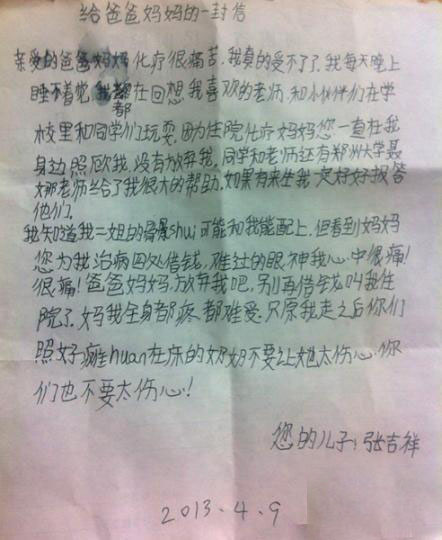 给爸爸妈妈的一封信
亲爱的爸爸妈妈化疗很痛苦,我真的受不了了,我每天晚上
睡不着觉,我都在回想,我喜欢的老师,和小伙伴们在学
校里和同学们玩耍,因为住院化疗妈妈您一直在我
身边照顾我,没有放弃我,同学和老师还有郑州大学聂
娜老师给了我很大的帮助,如果有来生我一定好好报答
他们。
我知道我二姐的骨髓shui可能和我能配上,但看到妈妈
您为我治病四处借钱,难过的眼神我心中很痛!
很痛!爸爸妈妈,放弃我吧,别再借钱叫我住
院了,妈我全身都疼,都难受,只原我走之后你们
照好瘫huan在床的奶奶不要让她太伤心,你
们也不要太伤心!
您的儿子:张吉祥
2013.4.9